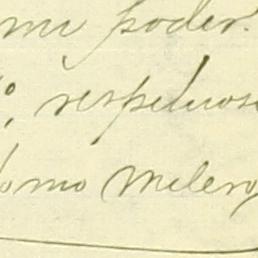 mi poder.
respetuos
como Melero